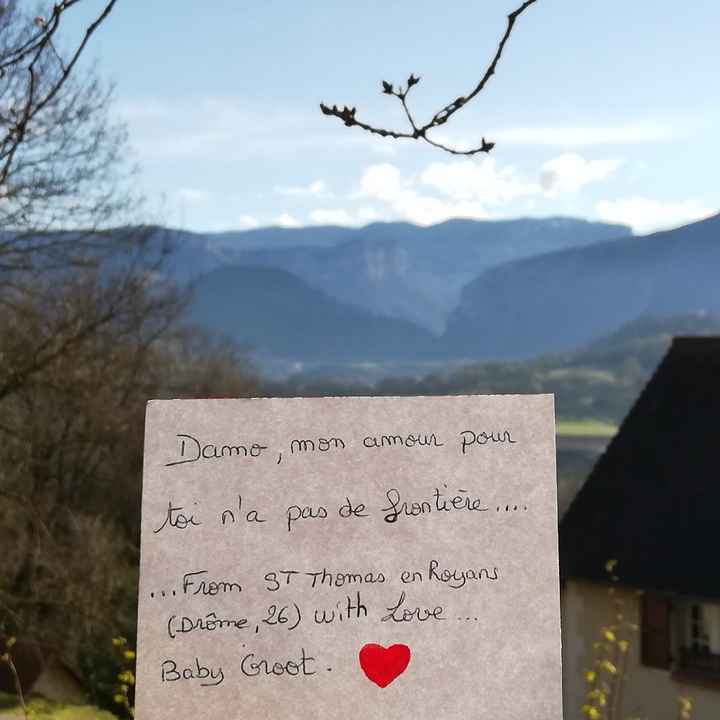 Damo, mon amour pour
toi n'a pas de frontière....
...From ST Thomas en Royans
(Drôme, 26) with Love...
Baby Groot.